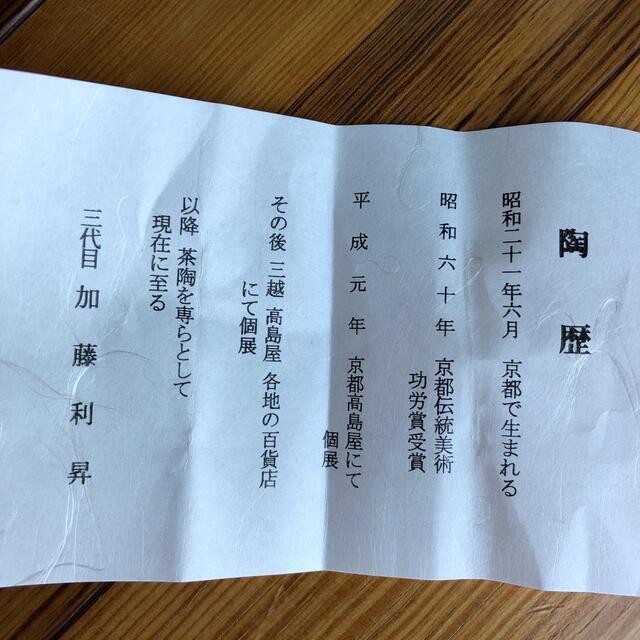 陶歴
昭和二十一年六月 京都で生まれる
昭和六十年 京都伝統美術
功労賞受賞
平成元年 京都高島屋にて
個展
その後 三越 高島屋 各地の百貨店
にて個展
以降 茶陶を専らとして
現在に至る
三代目 加藤利昇